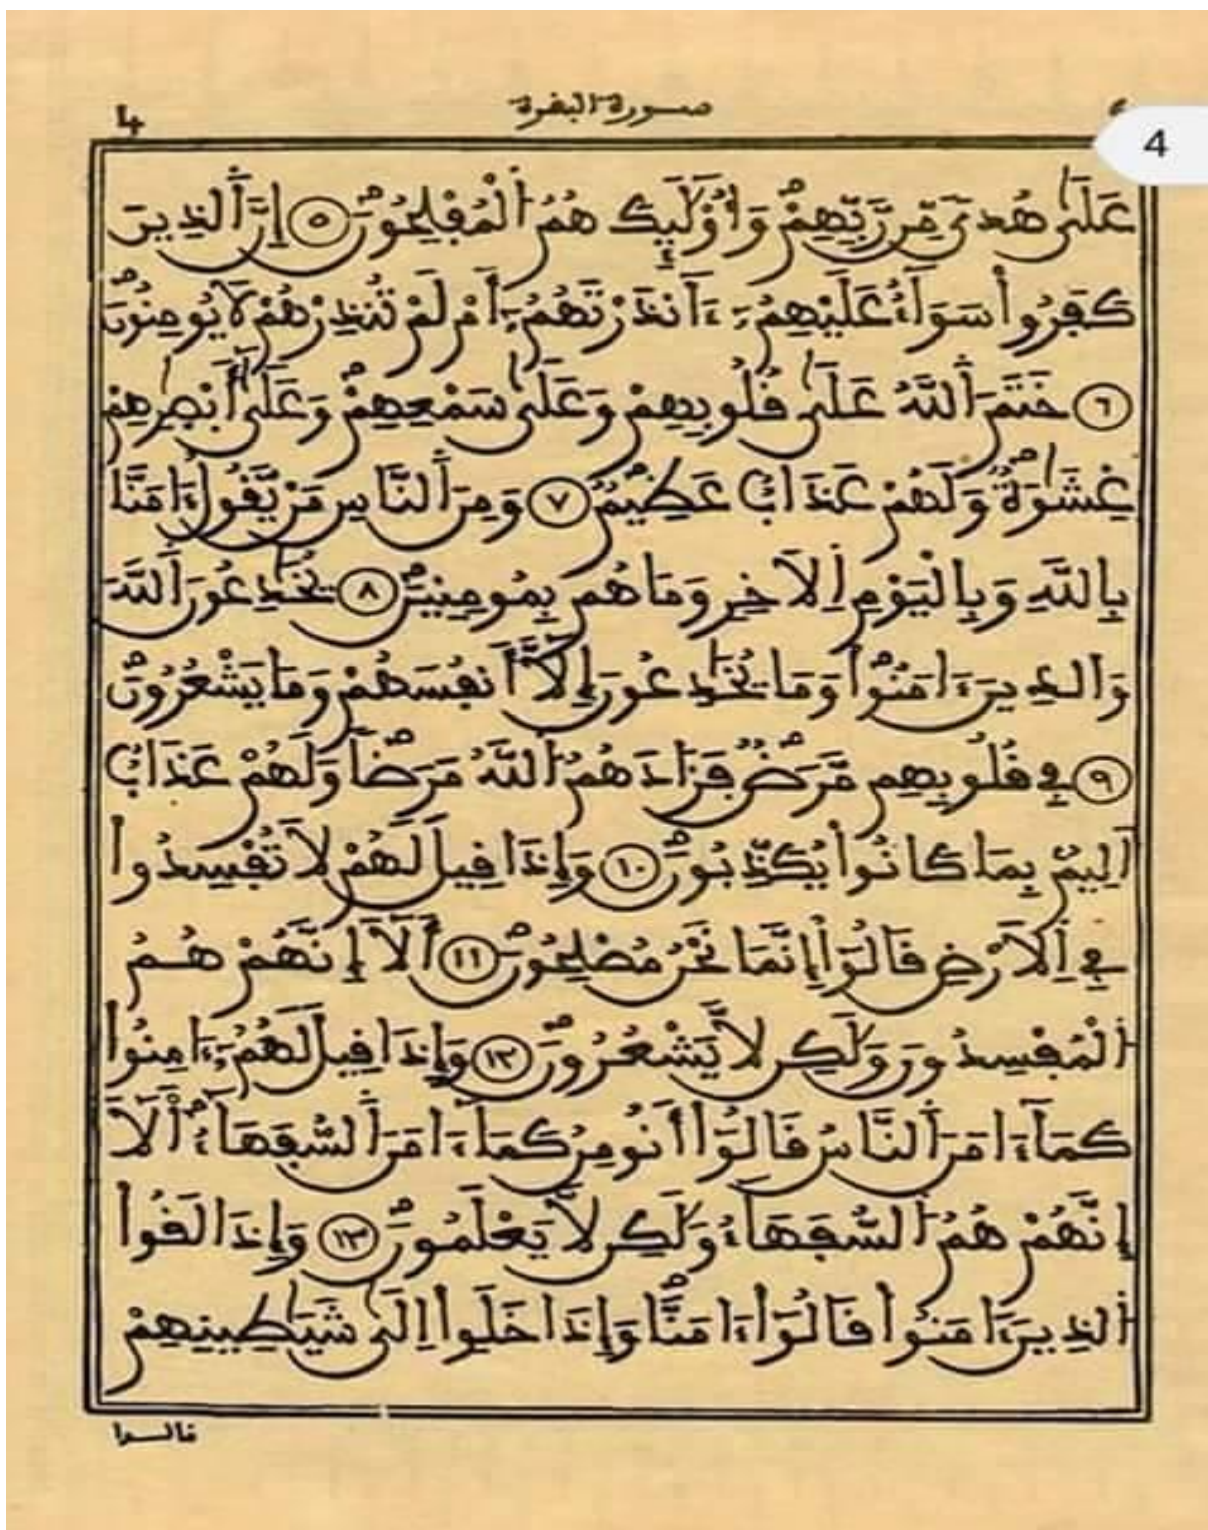 4
صورة البفرة
4
عَلَىٰ هُدىٗ مِّن رَّبِّهِمْ وَأُوْلَٰٓئِكَ هُمُ اُ۬لْمُفْلِحُونَ ٥ إِنَّ اَ۬لذِينَ
كَفَرُواْ سَوَآءٌ عَلَيْهِمُۥٓ ءَآنذَرْتَهُمُۥٓ أَمْ لَمْ تُنذِرْهُمْ لَا يُومِنُونَ
٦ خَتَمَ اَ۬للَّهُ عَلَىٰ قُلُوبِهِمْ وَعَلَىٰ سَمْعِهِمْ وَعَلَىٰٓ أَبْصٰرِهِمْ
غِشَٰوَةٌ وَلَهُمْ عَذَابٌ عَظِيمٌ ٧ وَمِنَ اَ۬لنَّاسِ مَنْ يَّقُولُ ءَامَنَّا
بِاللَّهِ وَبِالْيَوْمِ اِ۬لَاخِرِ وَمَا هُم بِمُومِنِينَ ٨ يُخَٰدِعُونَ اَ۬للَّهَ
وَالذِينَ ءَامَنُواْ وَمَا يُخَٰدِعُونَ إِلَّآ أَنفُسَهُمْ وَمَا يَشْعُرُونَ
٩ فِي قُلُوبِهِم مَّرَضٌ فَزَادَهُمُ اُ۬للَّهُ مَرَضاً وَلَهُمْ عَذَابٌ
اَلِيمٌ بِمَا كَانُواْ يُكَذِّبُونَ ١٠ وَإِذَا قِيلَ لَهُمْ لَا تُفْسِدُواْ
فِي اِ۬لَارْضِ قَالُوٓاْ إِنَّمَا نَحْنُ مُصْلِحُونَ ١١ أَلَآ إِنَّهُمْ هُمُ
اُ۬لْمُفْسِدُونَ وَلَٰكِن لَّا يَشْعُرُونَ ١٢ وَإِذَا قِيلَ لَهُمُۥٓ ءَامِنُواْ
كَمَآ ءَامَنَ اَ۬لنَّاسُ قَالُوٓاْ أَنُومِنُ كَمَآ ءَامَنَ اَ۬لسُّفَهَآءُ أَلَآ
إِنَّهُمْ هُمُ اُ۬لسُّفَهَآءُ وَلَٰكِن لَّا يَعْلَمُونَ ١٣ وَإِذَا لَقُواْ
اُ۬لذِينَ ءَامَنُواْ قَالُوٓاْ ءَامَنَّا وَإِذَا خَلَوِاْ اِلَىٰ شَيَٰطِينِهِمْ
قالوا